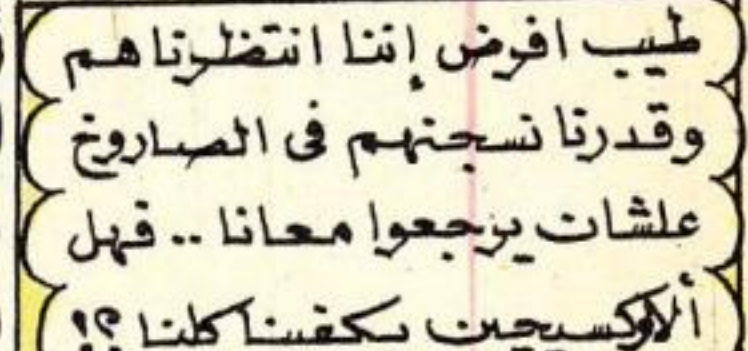 طيب افرض إننا انتظرناهم
وقدرنا نسجنهم فى الصاروخ
علشان يرجعوا معانا .. فهل
ألاوكسيجين يكفينا كلنا ؟!